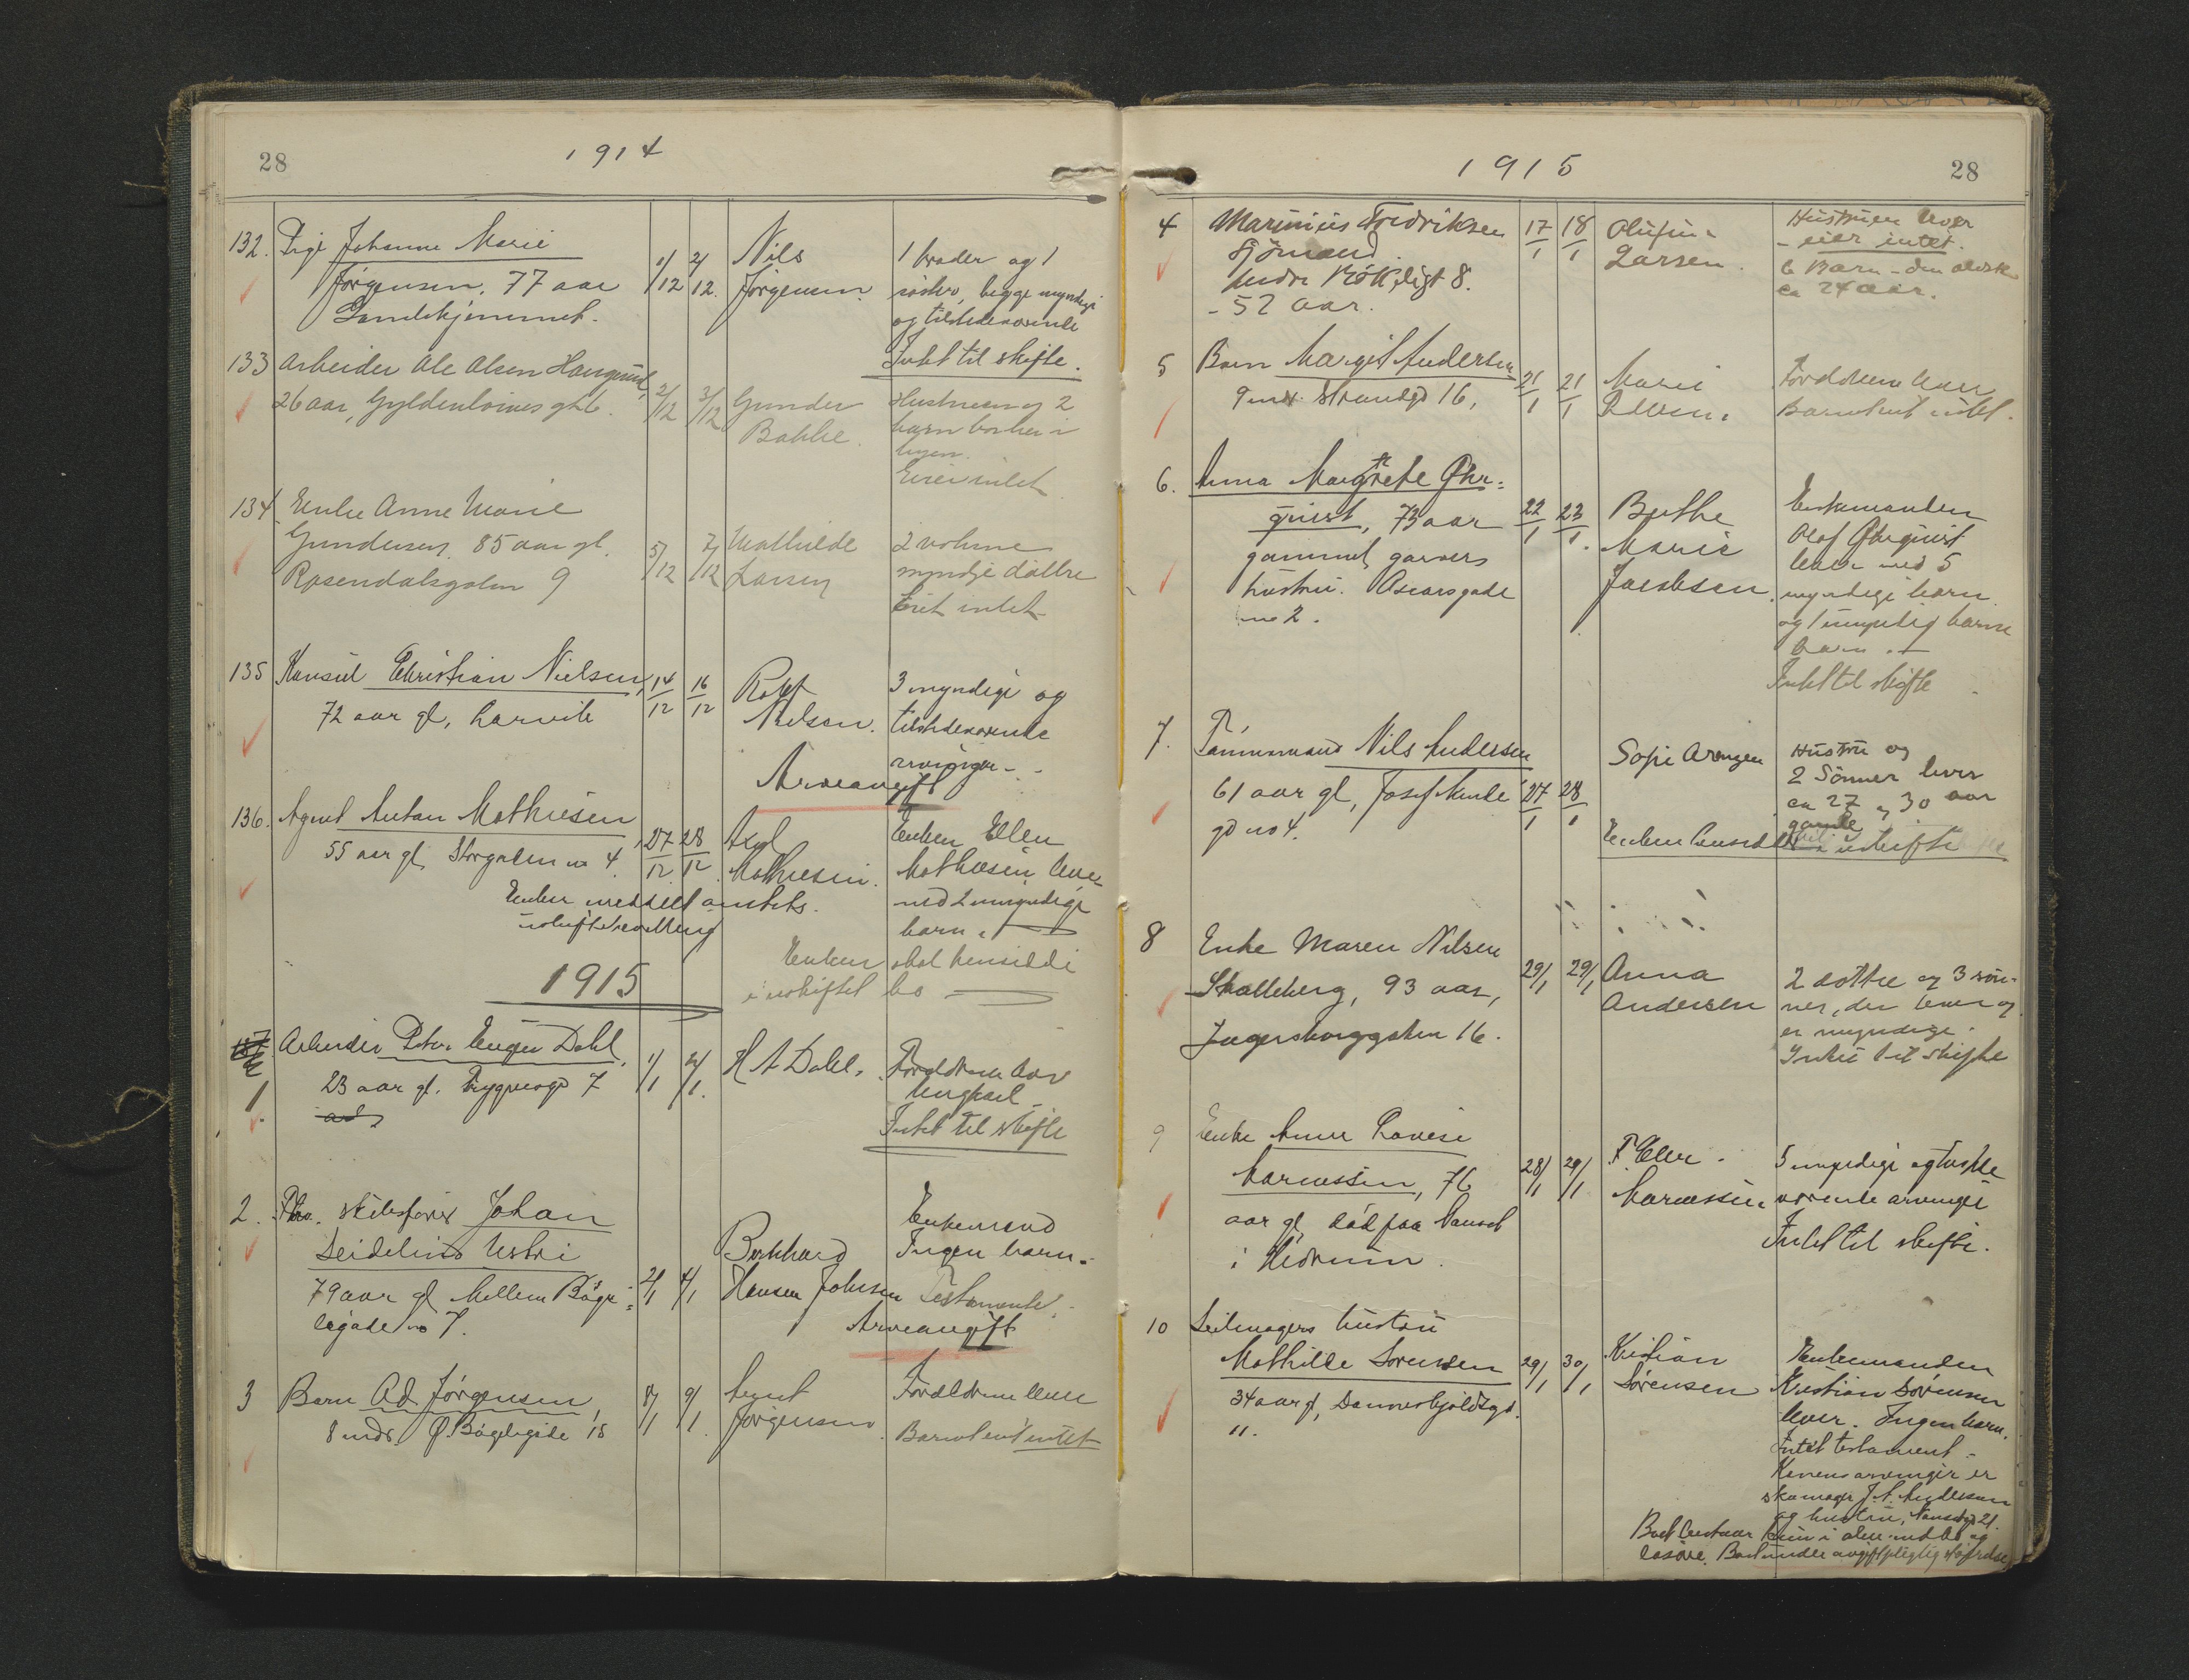 28
1914
132. Pige Johanne Marie
Jørgensen, 77 aar
1/12 2/12.
Nils
Jørgensen.
1 broder og 1
søster, begge myndige
og tilstedeværende
Intet til skifte.
133 Arbeider Ole Olsen
26 aar, Gyldenløves gt 6.
2/12 3/12
Gunder
Bakke.
Hustruen og 2
barn
byen.
Eier intet
134 Enke Anne Marie
Gundersen 85 aar gl.
Rosendalsgaten 9
5/12 7/12
Mathilde
Larsen
2 voksne
myndige døttre
Eiet intet
135 Konsul Christian Nielsen,
72 aar gl, Larvik
14/12 16/12
Rolf
Nielsen.
3 myndige og
tilstedeværende
arvinger
Arveavgift
136. Agent Anton Mathiesen
55 aar gl, Storgaten no 4.
27/12 28/12
Axel
Mathiesen.
Enken Ellen
Mathiesen lever
med 2 umyndige
barn.
Enken meddelt amtets
uskiftebevilling
Enken skal hensidde
i uskiftet bo
1915
1 Arbeider Peter Eugen Dahl,
23 aar gl. Trygvesgd 7
1/1 2/1.
H A Dahl.
Forældrene lever
Ungkarl
Intet til skifte
2. Fhv. skibsfører Johan
Seidelius Ustvi
79 aar gl Mellem Bøge-
ligade no 7.
2/1 4/1
Burkhard
Hansen Johnsen
Enkemand
Ingen barn.
Testamente.
Arveavgift
3 Barn Ad. Jørgensen,
8 mdr. Ø. Bøgeligade 15
8/1 9/1
Agent
Jørgensen.
Forældrene lever
Barnet eiet intet
1915
28
4 Marinius Fredriksen
Sjömand.
- 52 aar.
17/1 18/1
Olufine
Larsen.
Hustruen lever
- eier intet.
6 Barn - den ældste
ca 24 aar.
5 Barn Margit Andersen
9 mdr. Strandgd 16,
21/1 21/1
Marie
Forældrene lever
Barnet eiet intet.
6. Anna Margrethe Øhr-
quist, 73 aar
gammel, garvers
hustru. Oscarsgade
no 2.
22/1 23/1.
Berthe
Marie
Jacobsen.
Enkemanden
Olof Øhrquist
lever med 5
myndige barn
og 1 umyndig barne
barn.
Intet til skifte
7. Tømmermand Nils Andersen
61 aar gl, Josef
gd no 4.
27/1 28/1
Sofie Arengen
Hustru og
2 Sønner lever
ca 27 og 30 aar
gamle
Enken hensidder i uskifte
8 Enke Maren Nilsen
Skalleberg, 93 aar,
Jægersborggaten 16.
29/1 29/1
Anna
Andersen
2 døttre og 3 søn-
ner, der lever og
er myndige.
Intet til skifte
9 Enke Anne Lovise
Marcussen, 76
aar gl, død paa
i Hedrum.
28/1 29/1
F. Eller
Marcussen
5 myndige og tilstede
værende arvinger
Intet til skifte.
10 Seilmagers hustru
Mathilde Sørensen
34 aar gl, Danneskjoldsgd.
11.
29/1 30/1
Kristian
Sørensen
Enkemanden
Kristian Sørensen
lever. Ingen barn.
Intet testament.
Konens arvinger er
skomager J. A. Andersen
og hustru, 21.
Boet bestaar kun i
løsøre.